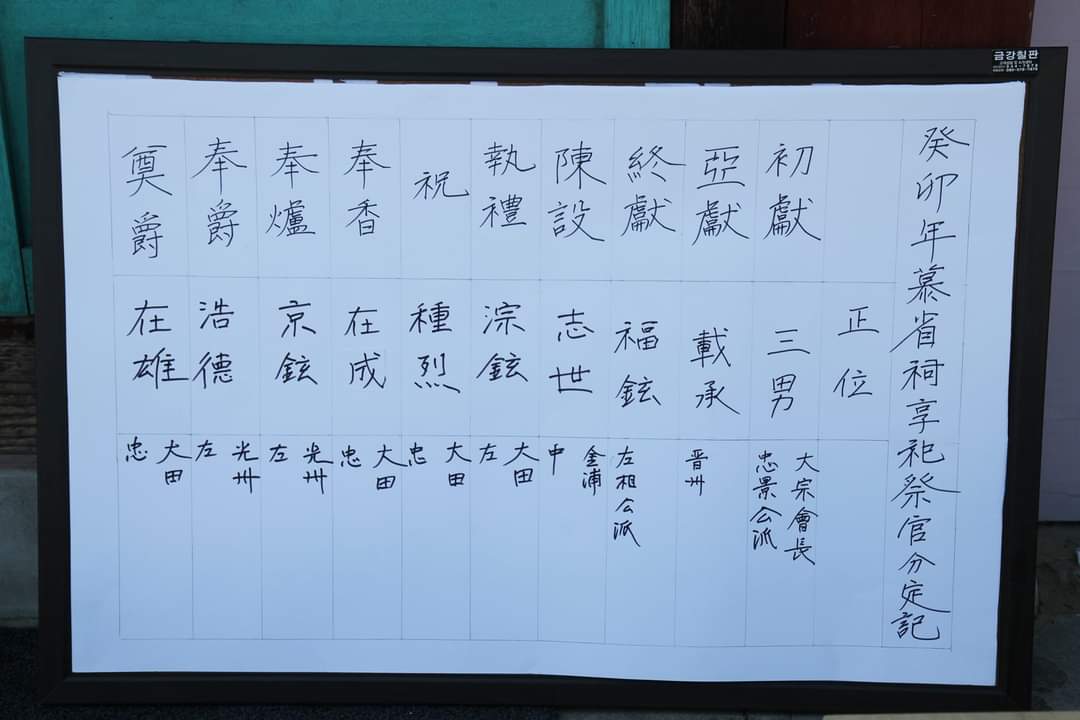 금강칠판
癸卯年慕省祠享祀祭官分定記
正位
初獻 三男 大宗會長 忠景公派
亞獻 載承 晋州
終獻 福鉉 左相公派
陳設 志世 金浦 中
執禮 淙鉉 大田 左
祝 種烈 大田 忠
奉香 在成 大田 忠
奉爐 京鉉 光州 左
奉爵 浩德 光州 左
奠爵 在雄 大田 忠